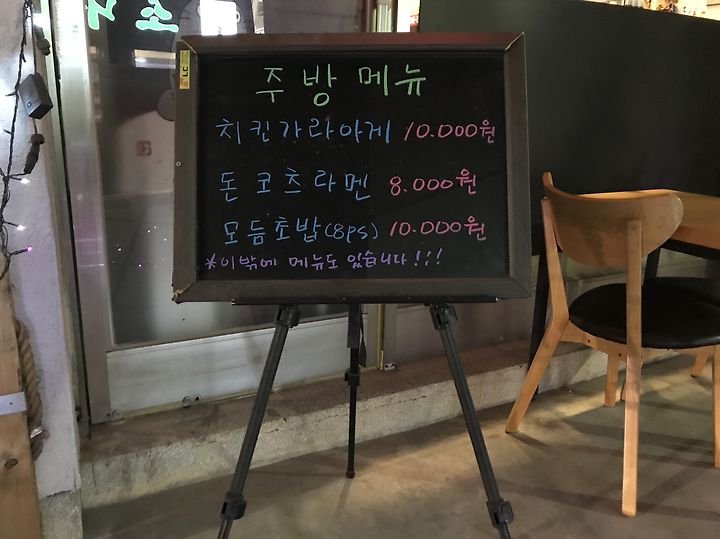 주방메뉴
치킨가라아게 10.000원
돈코츠라멘 8.000원
모듬초밥(8ps) 10.000원
*이밖에 메뉴도 있습니다!!!